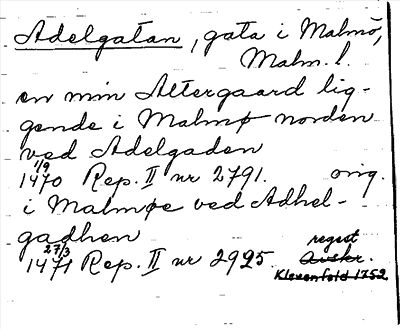 Adelgatan, gata i Malmö,
Malm. l.
en min Altergaard lig-
gende i Malmø norden
ved Adelgaden
1/9 1470 Rep. II nr 2791. orig.
i Malmøe ved Adhel-
gadhen
27/3 1471 Rep. II nr 2925. regest Avskr.
Klevenfeld 1752